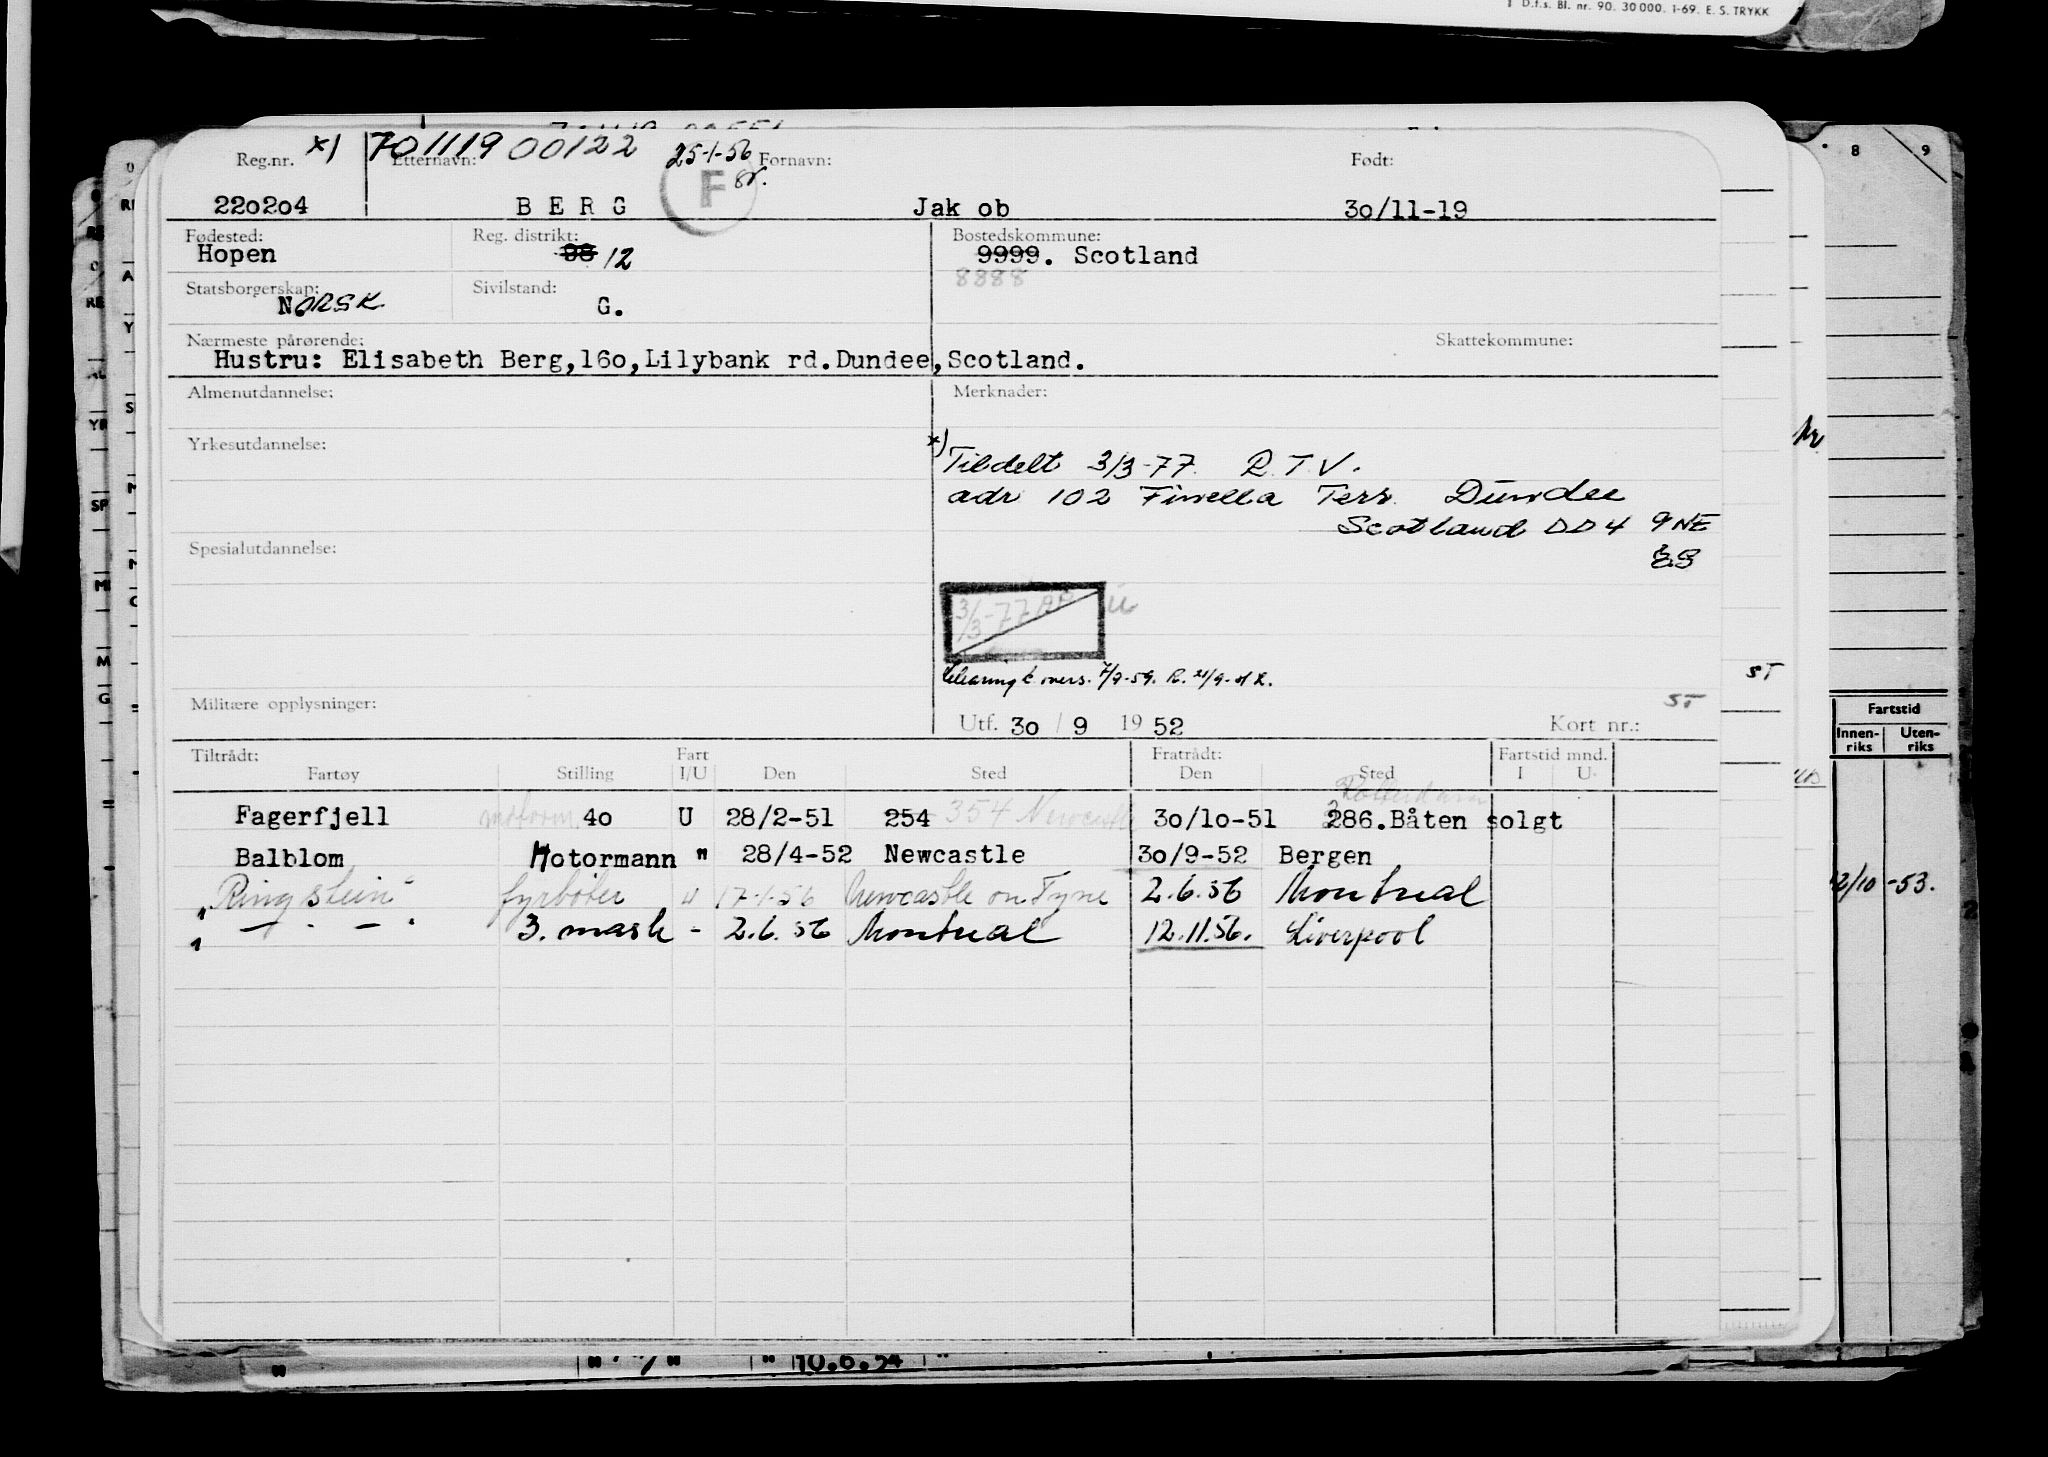 D.f.s. Bl. nr. 90. 30 000. 1-69. E. S. TRYKK
Reg.nr. x) 701119 00122 Etternavn: 25-1-56 Fornavn: Født:
F
220204 BERG Jakob 30/11-19
Fødested: Reg. distrikt: Bostedskommune:
Hopen 98 12 9999. Scotland
8888
Statsborgerskap: Sivilstand:
NORSK G.
Nærmeste pårørende: Skattekommune:
Hustru: Elisabeth Berg, 160, Lilybank rd. Dundee, Scotland.
Almenutdannelse: Merknader:
Yrkesutdannelse:
x) Tildelt 3/3-77. R.T.V.
adr 102 Finella Terr. Dundee
Scotland DD4 9NE
Spesialutdannelse:
3/3-77
7/9-59.
ST
Militære opplysninger:
ST
Utf. 30 / 9 1952 Kort nr.:
Tiltrådt: Fart Fratrådt: Fartstid mnd.
Fartøy Stilling I/U Den Sted Den Sted I U
Rotterdam
Fagerfjell 40 U 28/2-51 254 354 Newcastle 30/10-51 286. Båten solgt
Balblom Motormann " 28/4-52 Newcastle 30/9-52 Bergen
"Ringstein" fyrbøter " 17-1-56 Newcastle on Tyne 2.6.56 Montreal
" — . — . 3. mask - 2.6.56 Montreal 12.11.56. Liverpool
8 9
Fartstid
Innen-riks Uten-riks
2/10 -53.
" " " " 10.6.54 "